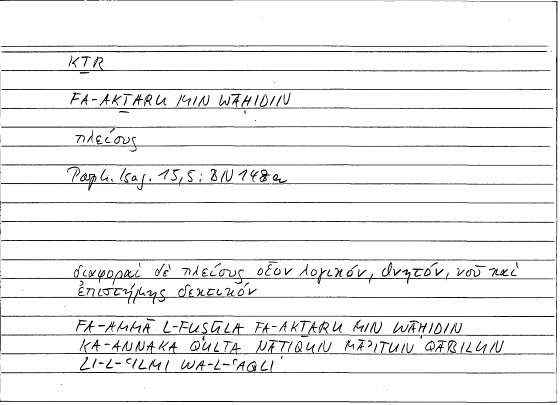 KṮR
FA-AKṮARU MIN WĀḤIDIN
πλείους
Porph. Isag. 15,5: BN 148a
διαφοραὶ δὲ πλείους οἷον λογικόν, θνητόν, νοῦ καὶ
ἐπιστήμης δεκτικόν
FA-AMMĀ L-FUṢŪLA FA-AKṮARU MIN WĀḤIDIN
KA-ANNAKA QULTA NĀṬIQUN MĀʾITUN QĀBILUN
LI-L-ʿILMI WA-L-ʿAQLI